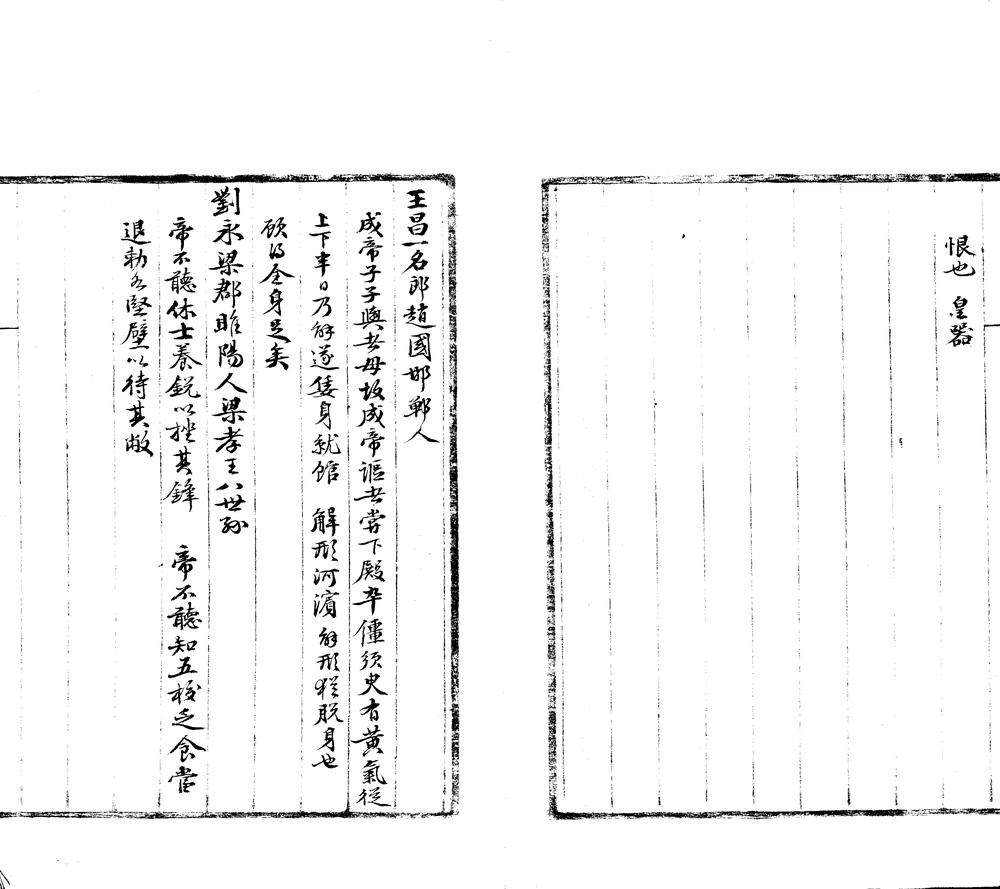 恨也　皇器
王昌一名郎趙國邯鄲人
成帝子子輿者母故成帝謳者嘗下殿卒僵須臾有黃氣從
上下半日乃解遂姙身就館　解形河濱解形猶脫身也
顧得全身足矣
劉永梁郡睢陽人梁孝王八世孫
帝不聽休士養銳以挫其鋒　帝不聽知五校乏食當
退勅各堅壁以待其敝